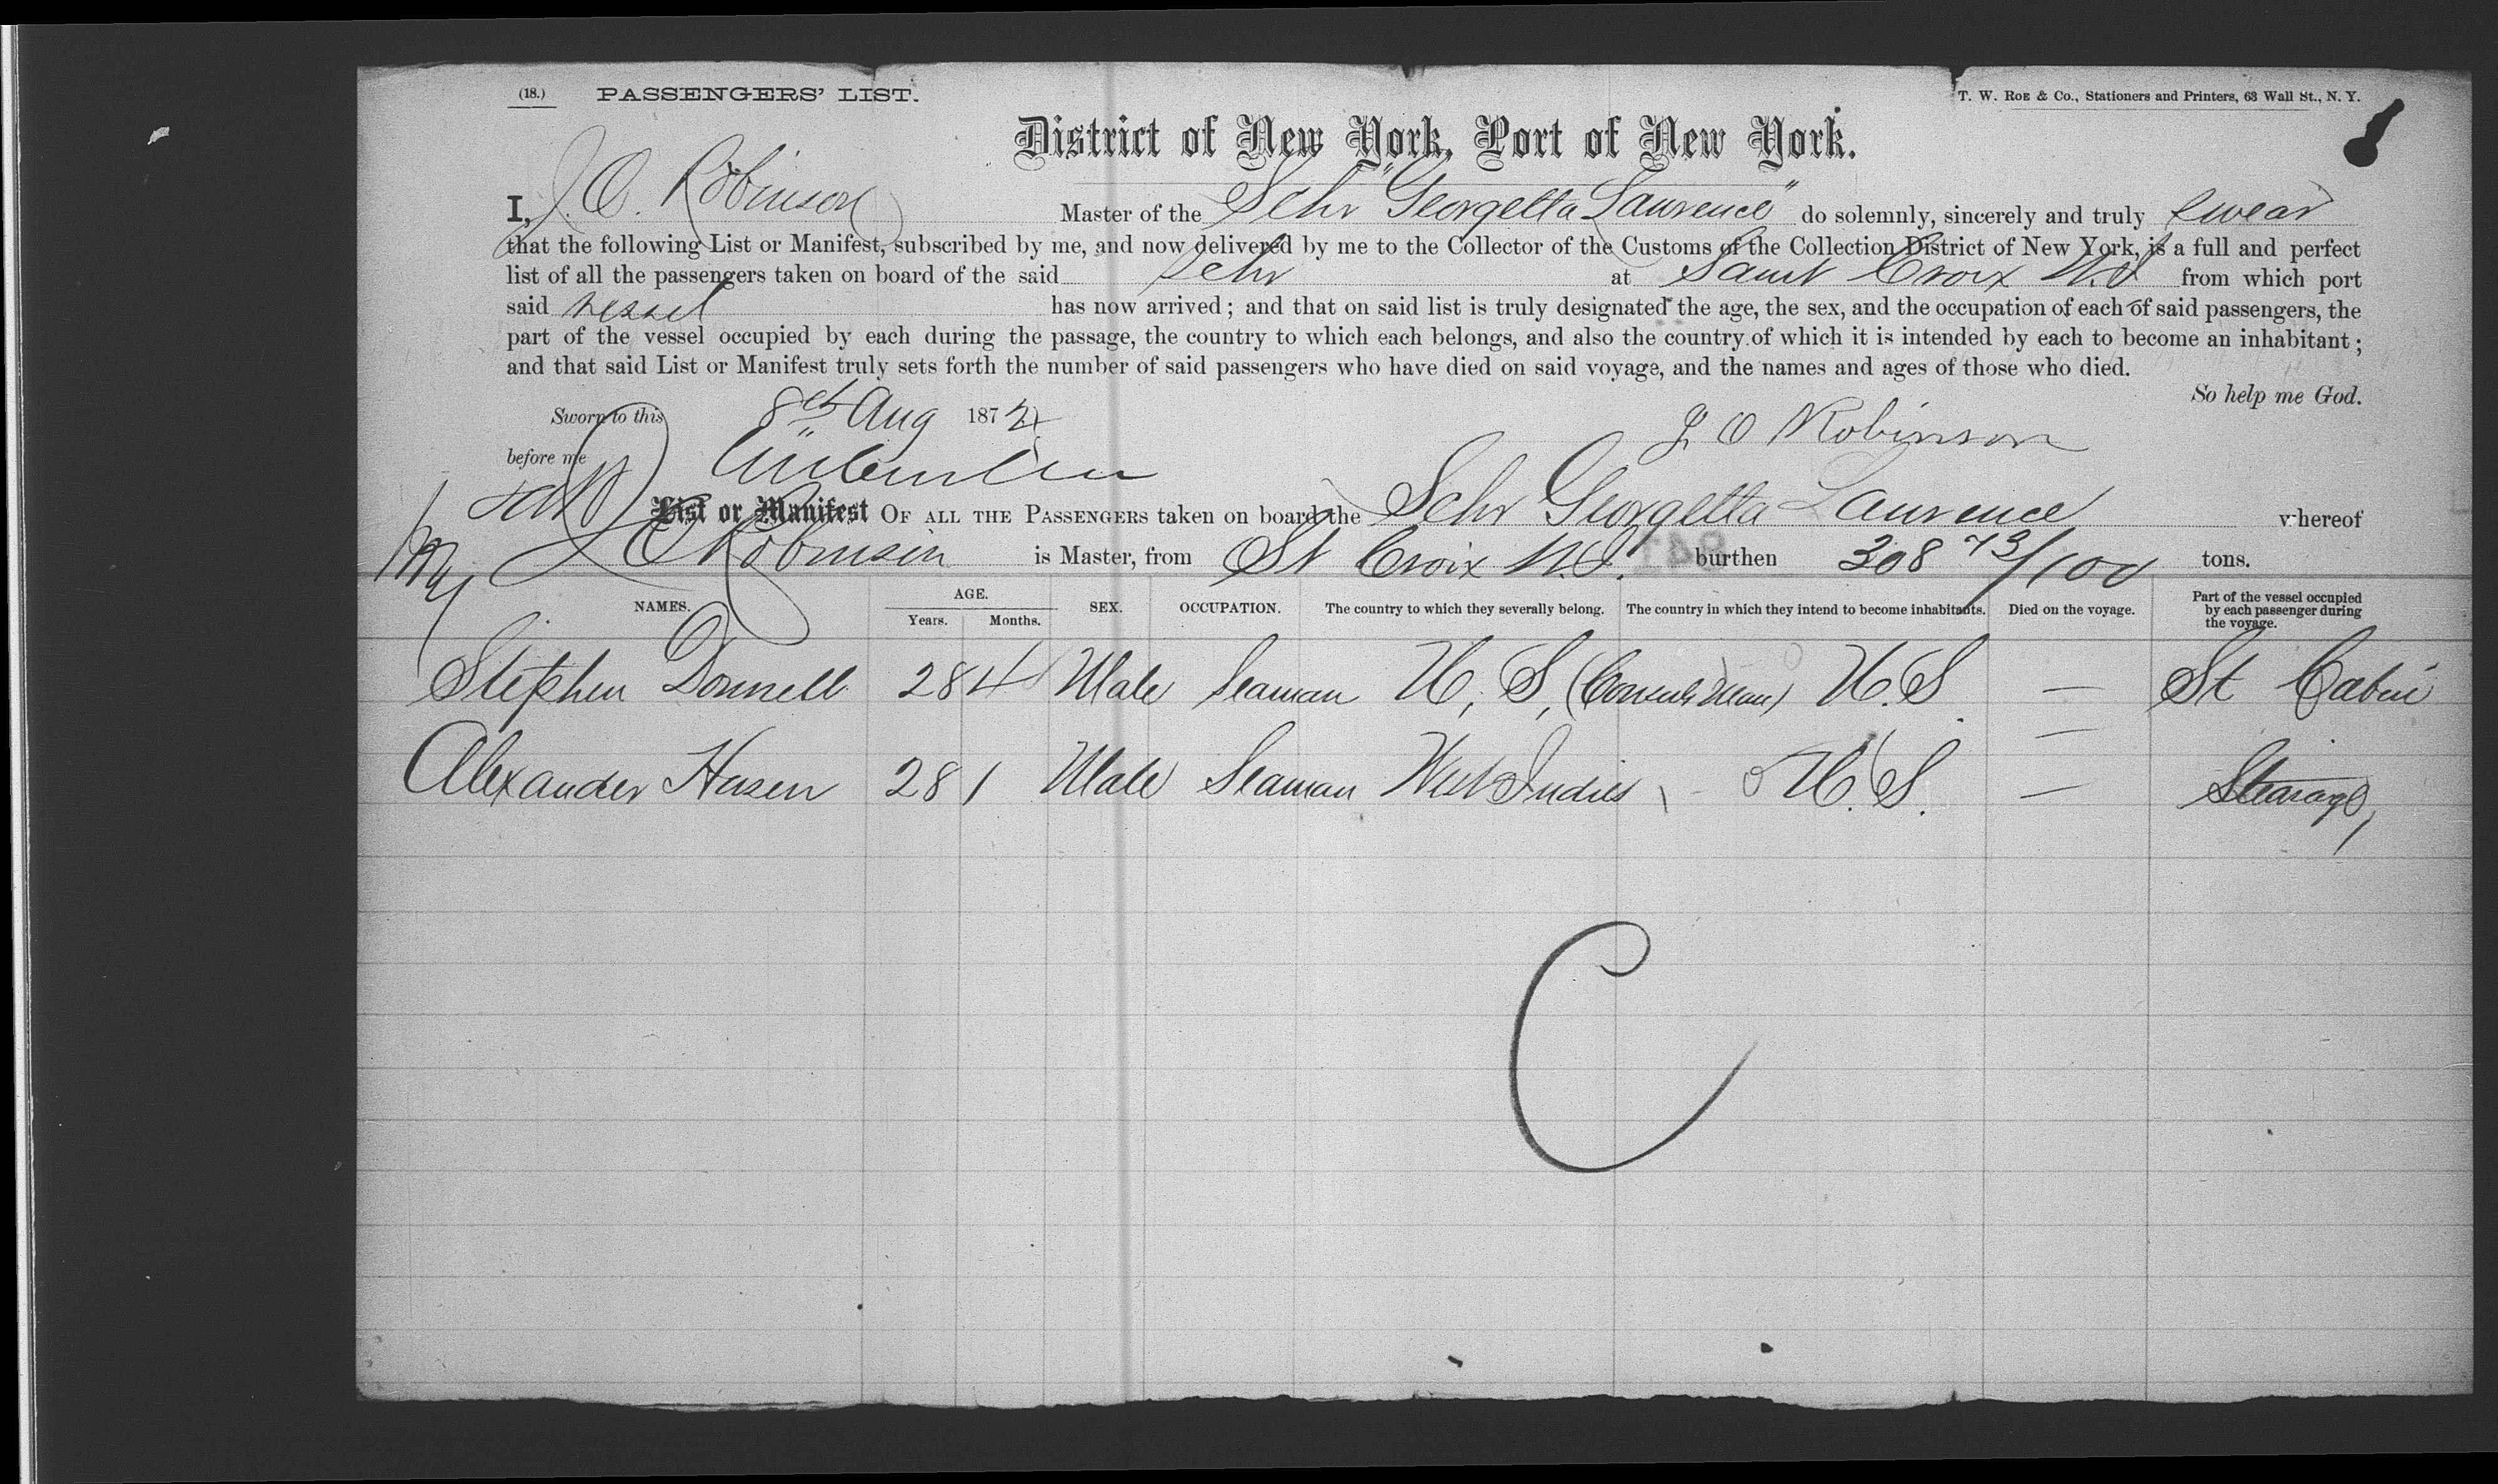 (18.) PASSENGERS' LIST. T. W. ROE & Co., Stationers and Printers, 63 Wall St., N. Y.
District of New York, Port of New York.
I, J. O. Robinson Master of the Schr "Georgetta Lawrence" do solemnly, sincerely and truly swear
that the following List or Manifest, subscribed by me, and now delivered by me to the Collector of the Customs of the Collection District of New York, is a full and perfect
list of all the passengers taken on board of the said Schr at Saint Croix W.I from which port
said vessel has now arrived; and that on said list is truly designated the age, the sex, and the occupation of each of said passengers, the
part of the vessel occupied by each during the passage, the country to which each belongs, and also the country of which it is intended by each to become an inhabitant;
and that said List or Manifest truly sets forth the number of said passengers who have died on said voyage, and the names and ages of those who died.
So help me God.
Sworn to this 8th Aug 187
J O Robinson
before me
List or Manifest OF ALL THE PASSENGERS taken on board the Schr Georgetta Laurence whereof
J O Robinson is Master, from St Croix W.I. burthen 308 73/100 tons.
NAMES. AGE. Years. Months. SEX. OCCUPATION. The country to which they severally belong. The country in which they intend to become inhabitants. Died on the voyage. Part of the vessel occupied by each passenger during the voyage.
Stephen Donnell 28 4 Male Seaman U, S, U.S. — St Cabin
—
Alexander Husen 28 1 Male Seaman West Indies U.S. — Stearage,
C